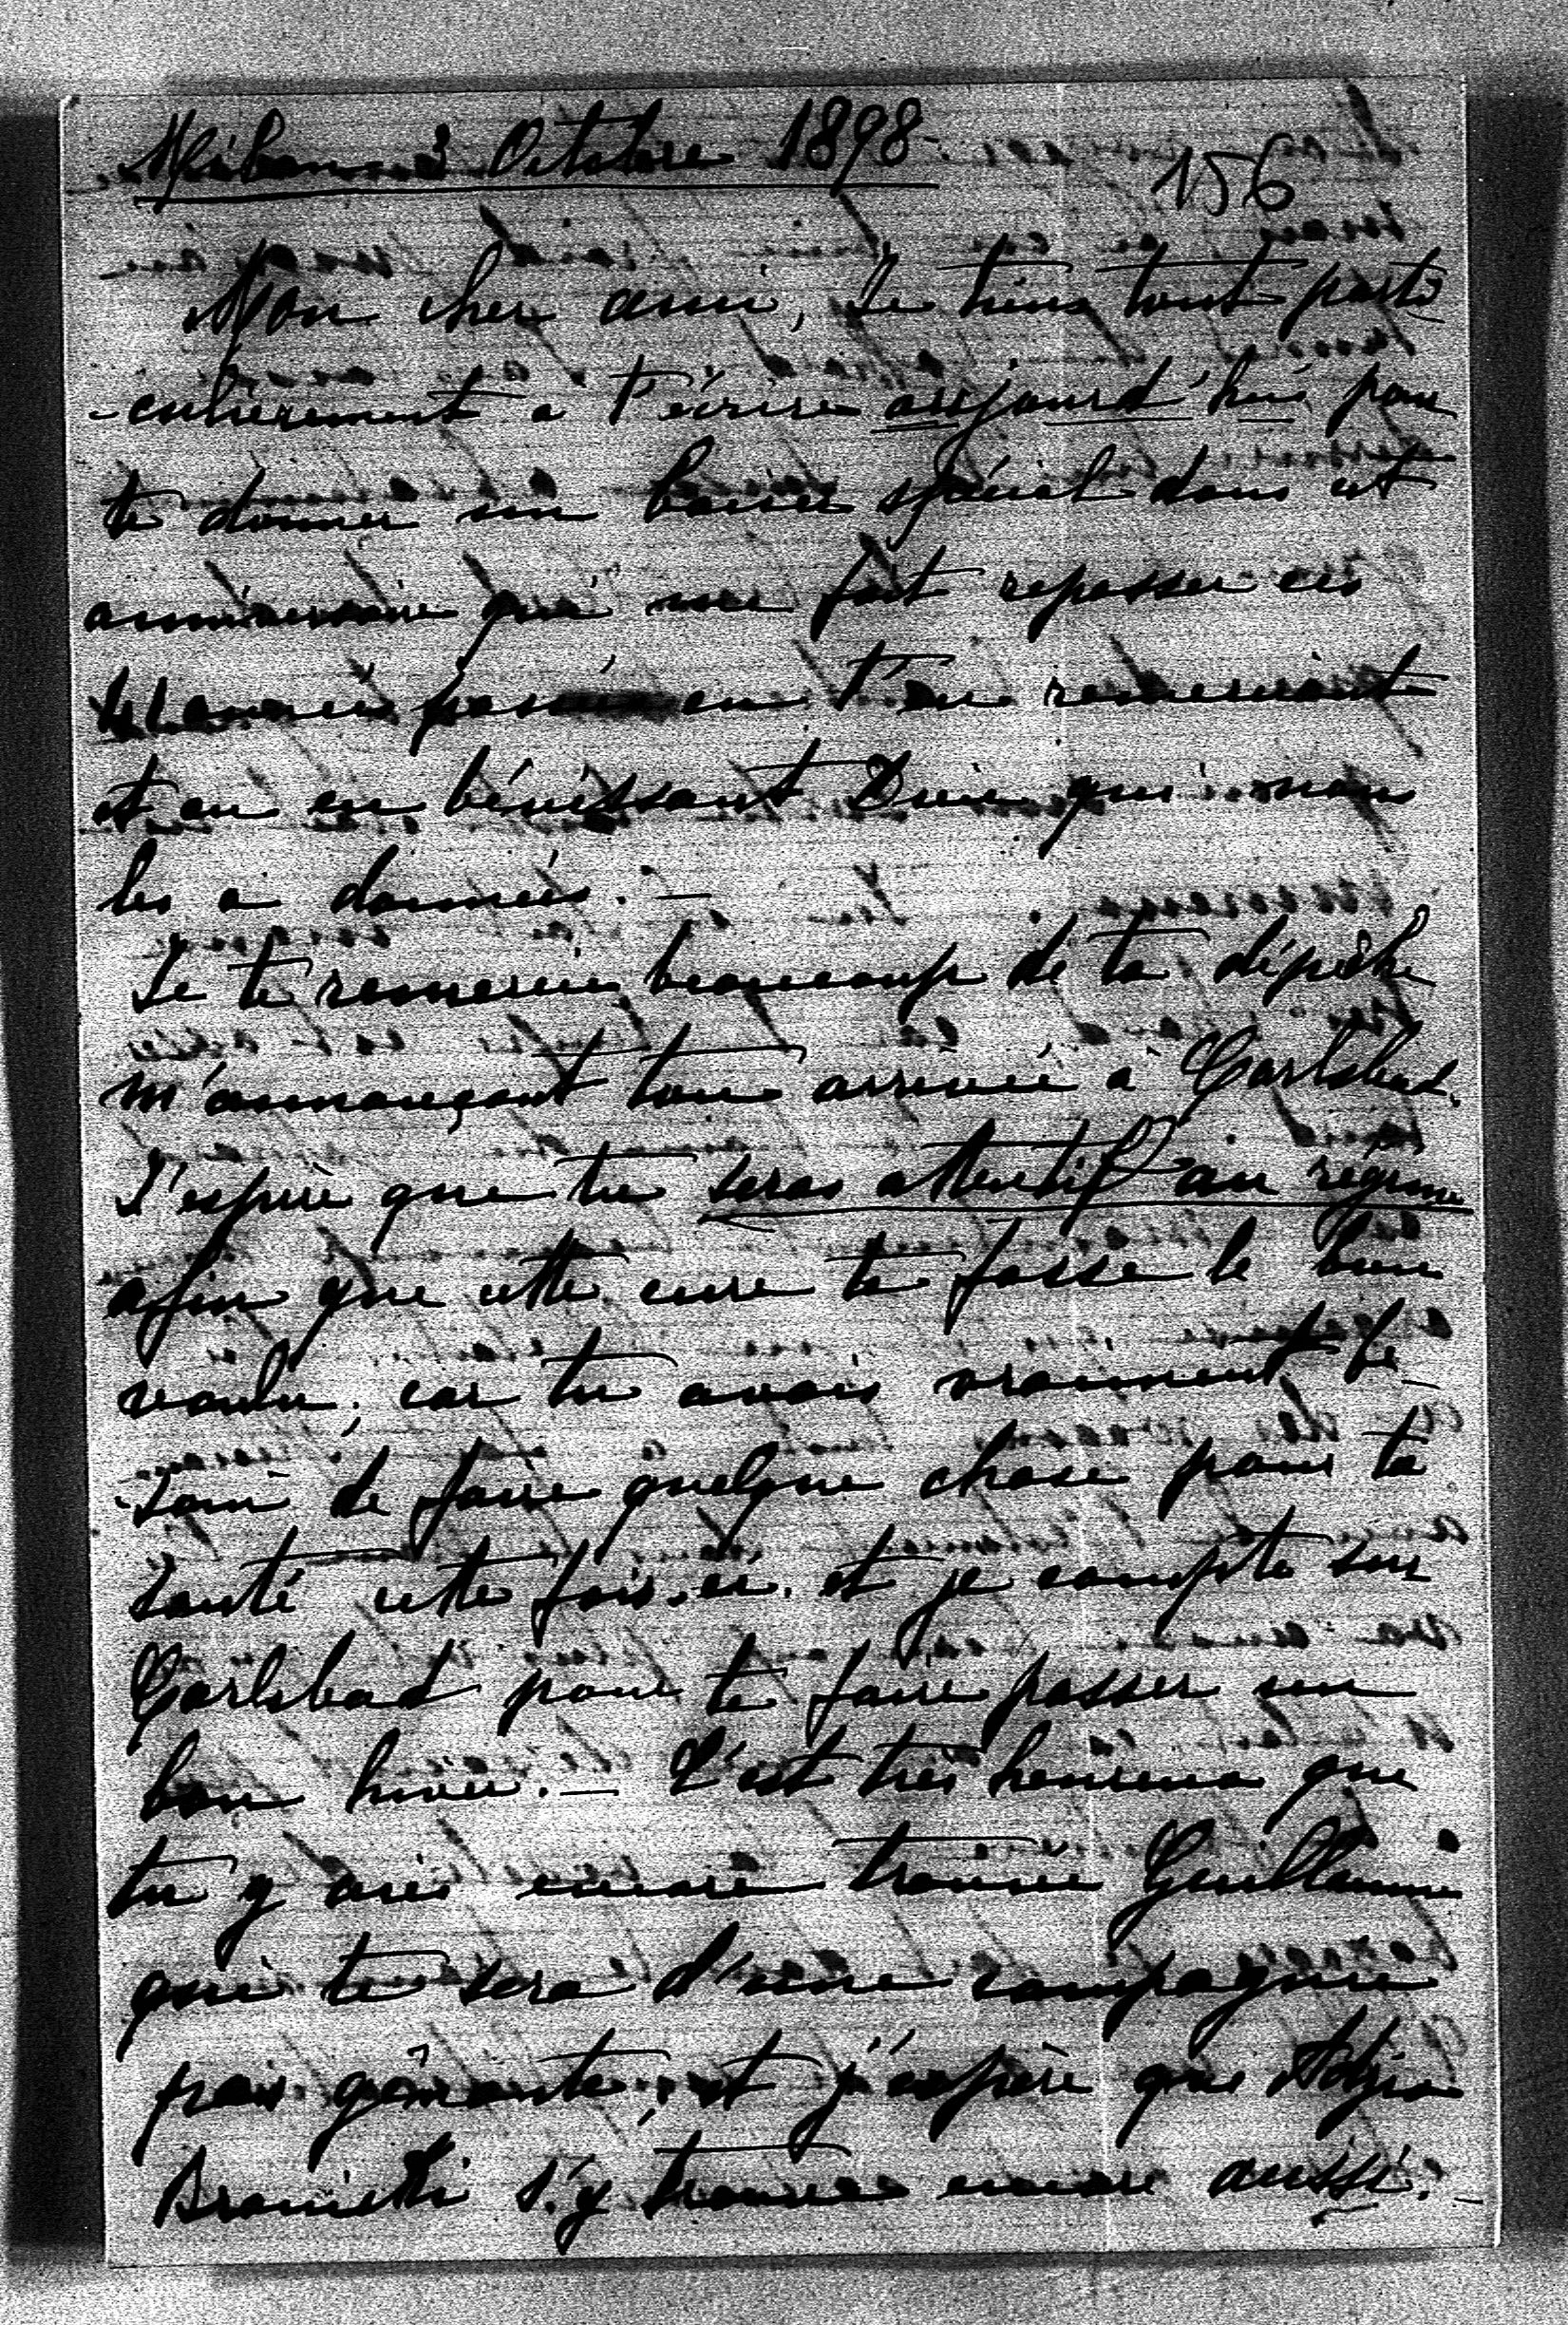 3 Octobre 1898
156
Mon cher ami, Je tiens tout parti
-culièrement a t'écrire aujourd'hui pour
te donner un baiser spécial dans cet
anniversaire qui me fait repasser ces
années passées en t'en remerciant
et en en bénissant Dieu qui nous
les a données. —
Je te remercie beaucoup de ta dépêche
m'annonçant ton arrivée à Carlsbad.
J'espère que tu seras attentif au régime
afin que cette cure te fasse le bien
voulu, car tu avais vraiment be-
-soin de faire quelque chose pour ta
santé cette fois-ci, et je compte sur
Carlsbad pour te faire passer un
bon hiver. — C'est très heureux que
tu y aies encore trouvé Guillaume
qui te sera d'une compagnie
pas gênante, et j'espère que
s'y trouve encore aussi. —